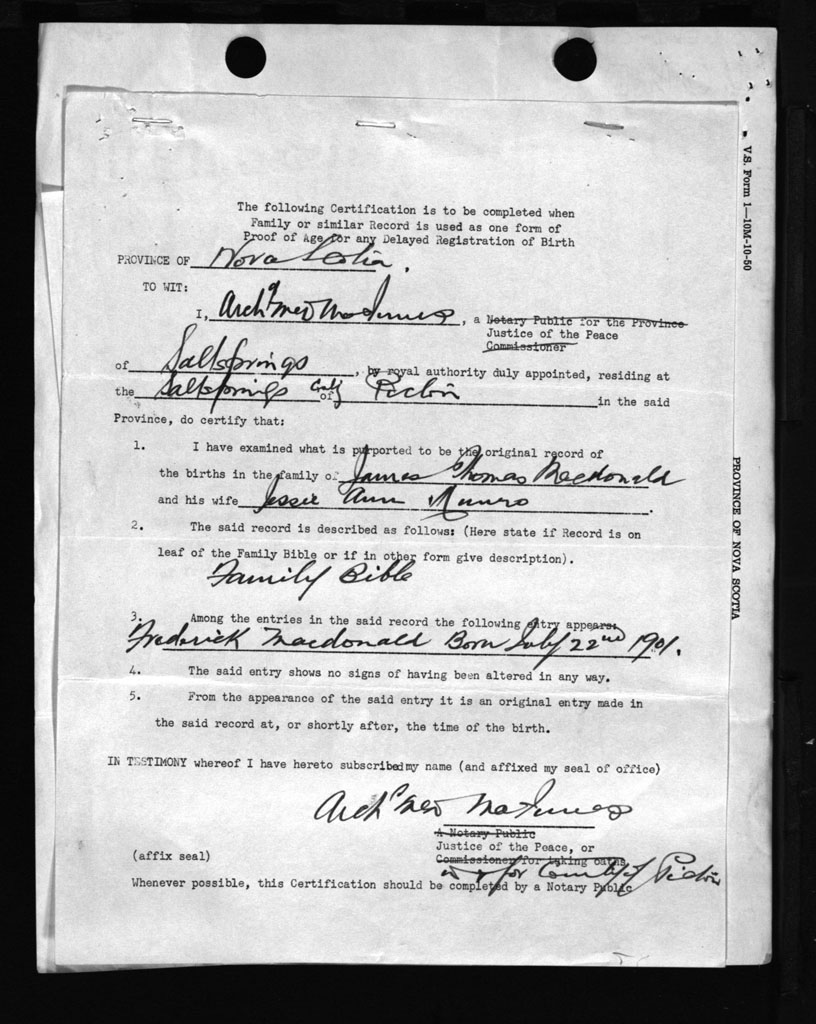 The following Certification is to be completed when
Family or similar Record is used as one form of
Proof of Age for any Delayed Registration of Birth
PROVINCE OF Nova Scotia.
TO WIT:
I, Archd MacInnes, a Notary Public for the Province
Justice of the Peace
Commissioner
of Saltsprings, by royal authority duly appointed, residing at
the Saltsprings of Pictou in the said
Province, do certify that:
1. I have examined what is purported to be the original record of
the births in the family of James Thomas Macdonald
and his wife Jessie Ann Munro.
2. The said record is described as follows: (Here state if Record is on
leaf of the Family Bible or if in other form give description).
Family Bible
3. Among the entries in the said record the following entry appears:
Frederick Macdonald Born July 22nd 1901.
4. The said entry shows no signs of having been altered in any way.
5. From the appearance of the said entry it is an original entry made in
the said record at, or shortly after, the time of the birth.
IN TESTIMONY whereof I have hereto subscribed my name (and affixed my seal of office)
Archd MacInnes
A Notary Public
Justice of the Peace, or
(affix seal) Commissioner for taking oaths
for County of Pictou
Whenever possible, this Certification should be completed by a Notary Public
V.S. Form 1—10M-10-50
PROVINCE OF NOVA SCOTIA